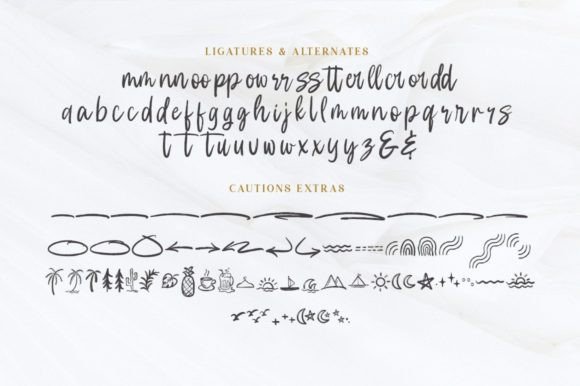 LIGATURES & ALTERNATES
mm nn oo pp ow rr ss tt er ll cr or dd
a a b c c d d e f f g g g h i j k k l l m m n n o p q r r r r s
t t t t u u w w x x y y z & &
CAUTIONS EXTRAS